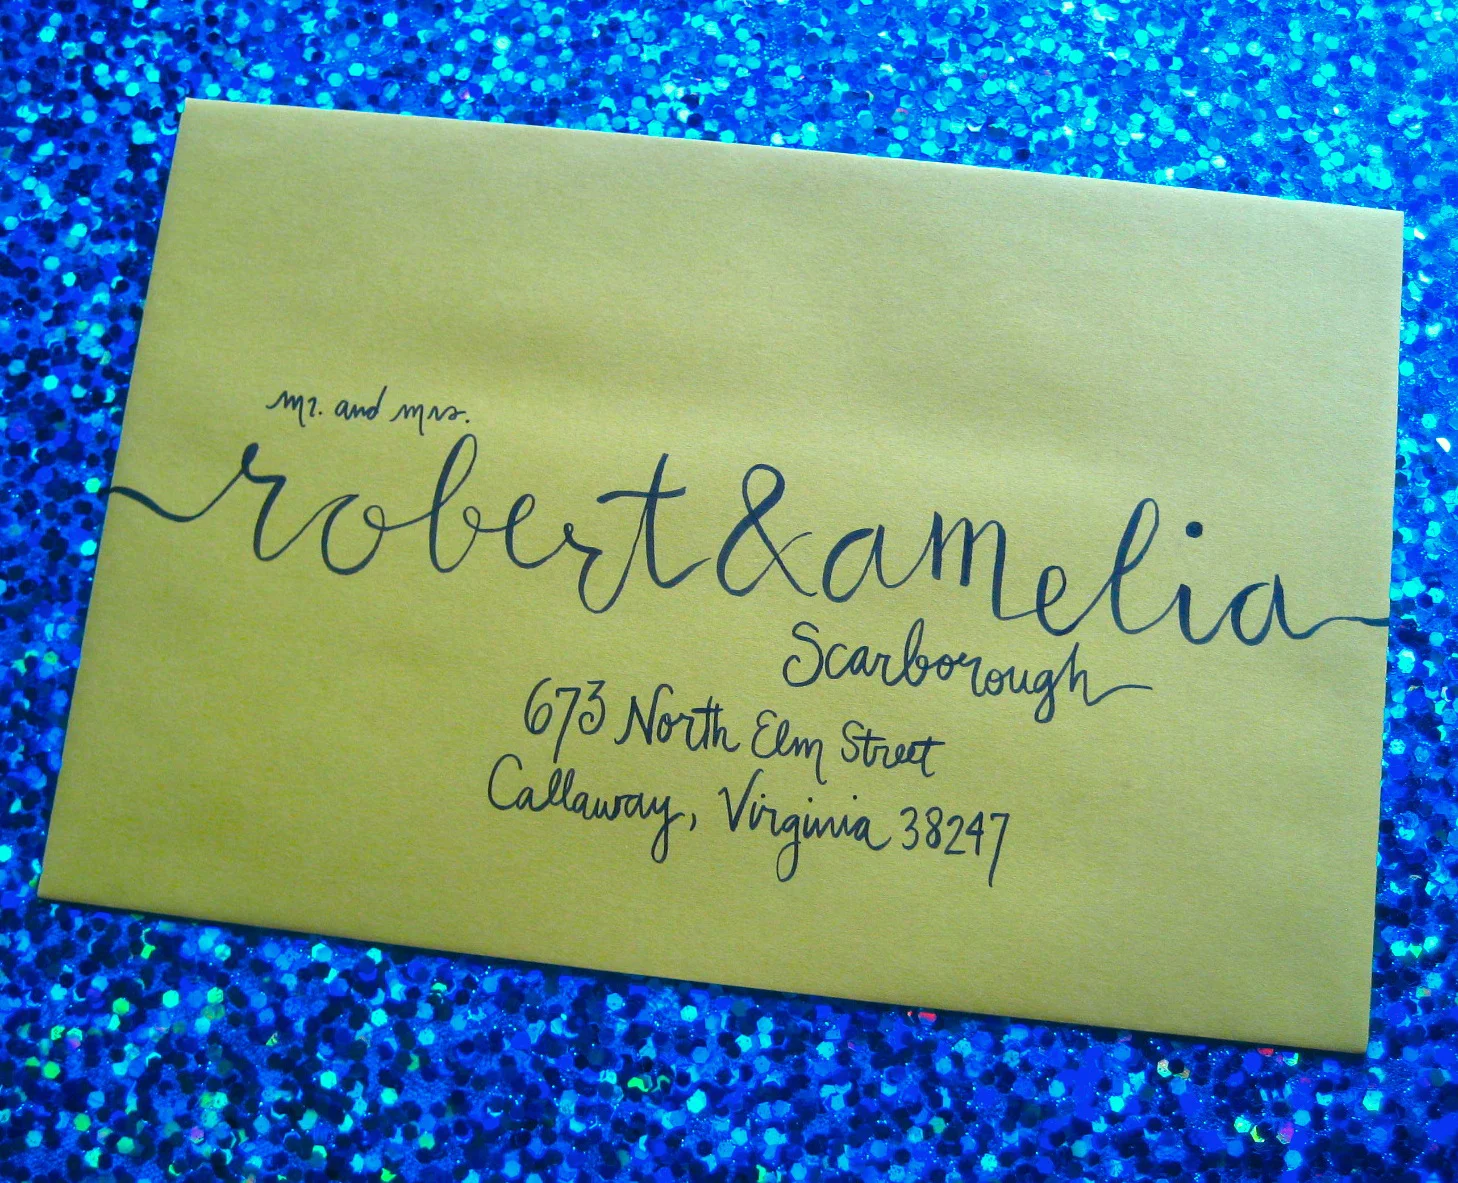 mr. and mrs.
robert & amelia
Scarborough
673 North Elm Street
Callaway, Virginia 38247